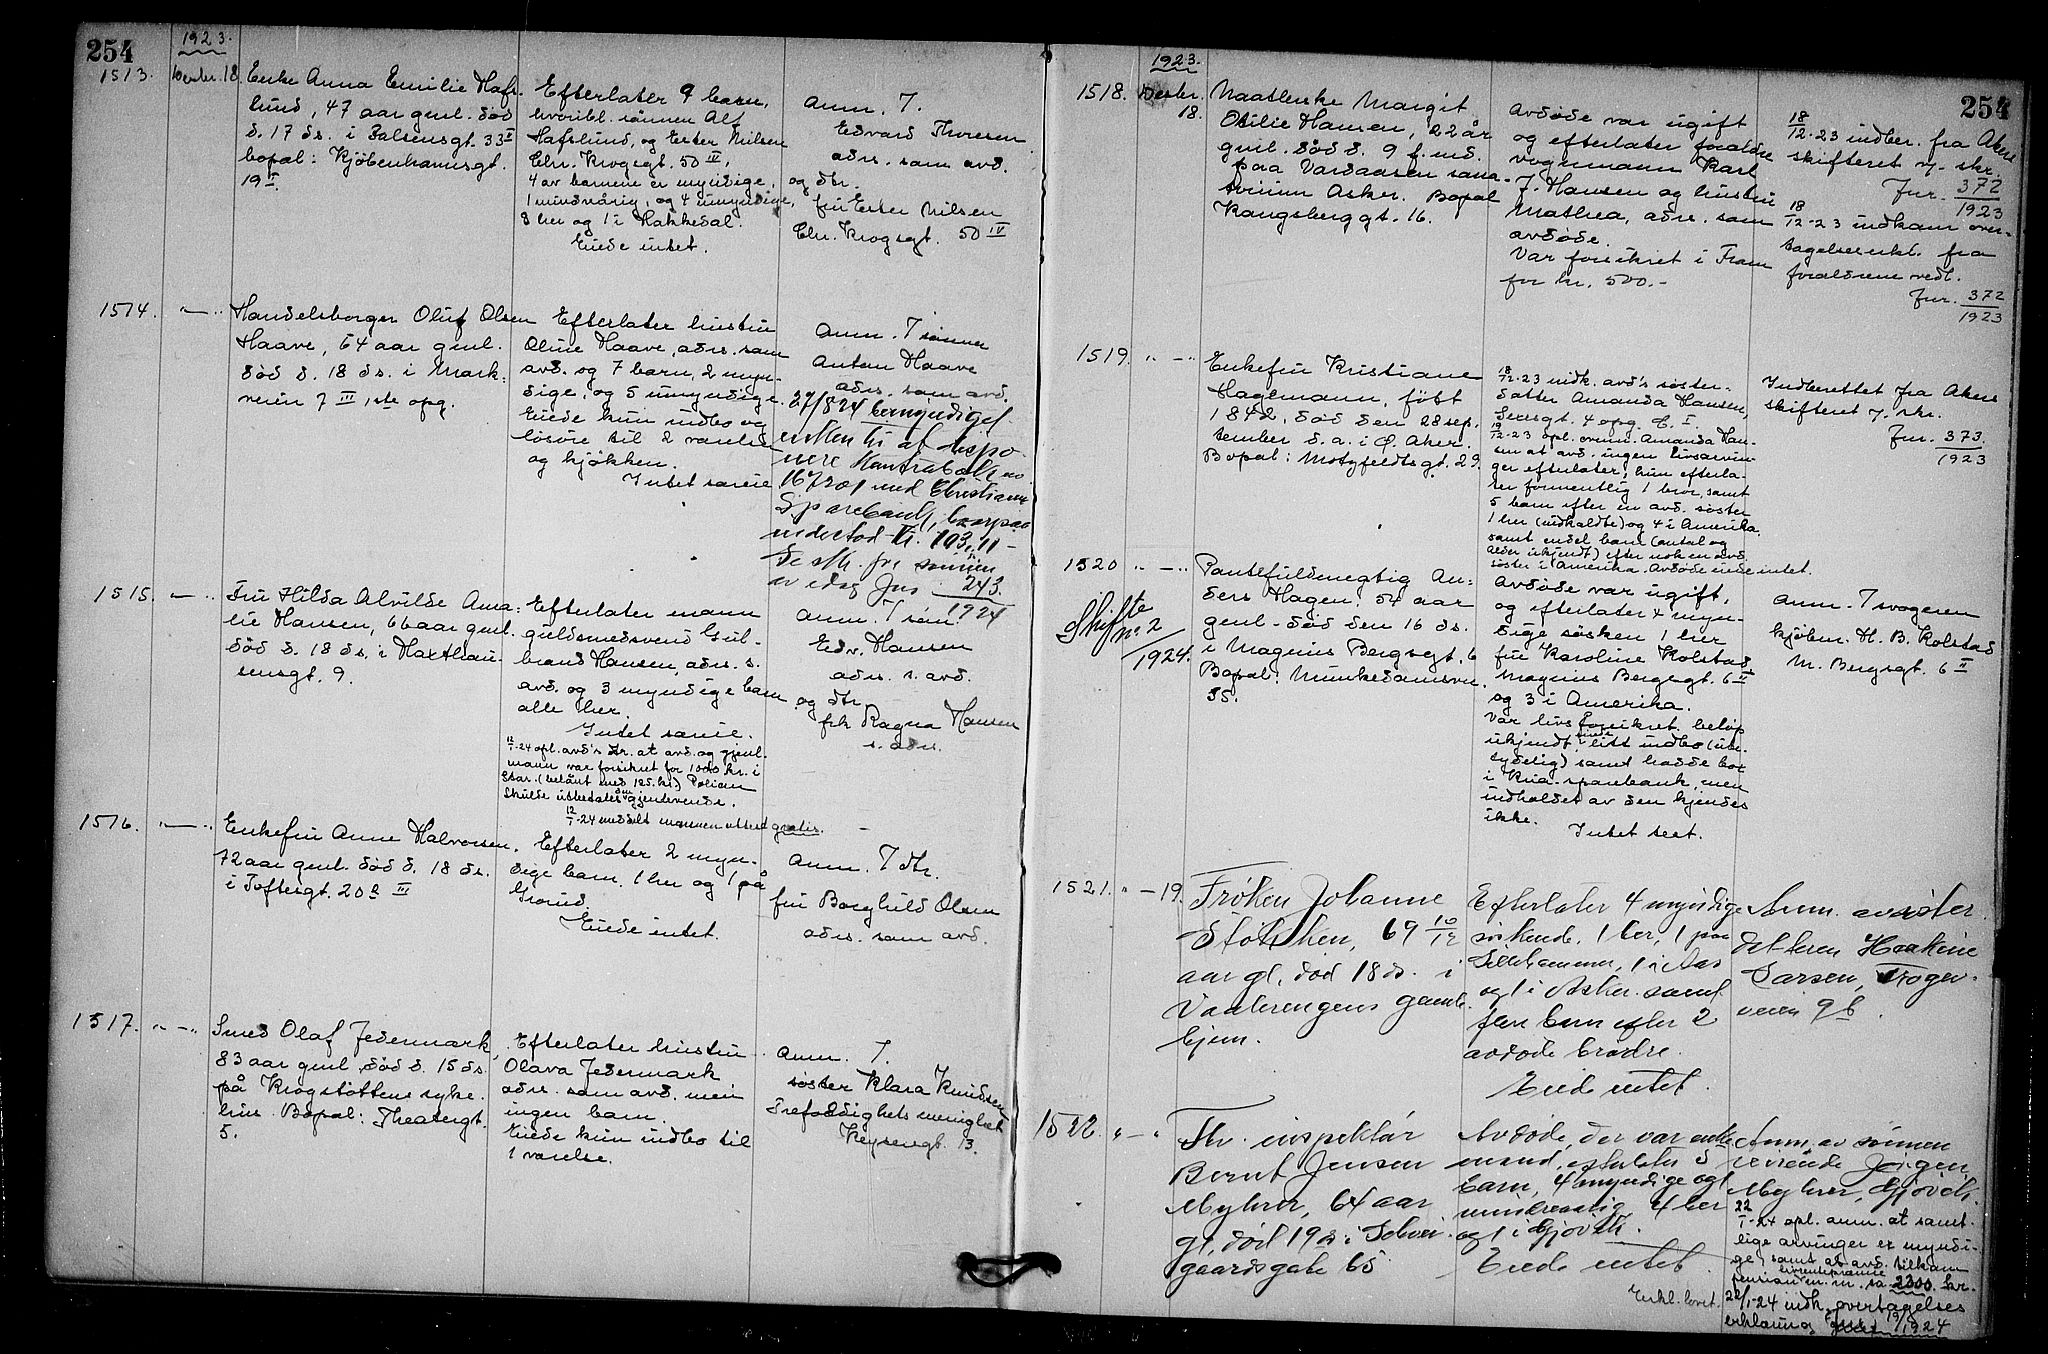 254
1923.
1513.
Desbr. 18.
Enke Anna Emilie Hafs-
lund, 47 aar gml. död
d. 17 ds. i 33 II
bopæl: Kjöbenhavnsgt.
19 I.
Efterlater 9 barn,
hvoribl. sönnen Alf
Hafslund, og Ester Nilsen
Chr. Krogsgt. 50 IV,
4 av barnene er myndige,
1 mindreårig, og 4 umyndige,
8 her og 1 i Hakkedal.
Eiede intet.
Anm. T.
Edvard Thoresen
adrs. som avd.
og dtr.
fru Ester Nilsen
Chr. Krogsgt. 50 IV
1514.
Handelsborger Oluf Olsen
Haave, 64 aar gml.
död d. 18 ds. i Mark-
veien 7 III, 1ste opg.
Efterlater hustru
Oline Haave, adrs. som
avd. og 7 barn, 2 myn-
dige, og 5 umyndige.
Eiede kun indbo og
lösöre til 2 værelser
og kjökken.
Intet særeie
Anm. T sönnen
Anton Haave
adrs. som avd.
27/8 24 bemyndiget
enken til at dispo-
nere Kontrabok no
167201 med Christiania
Sparebank, hvorpaa
indestod kr. 193,11 -
Se sk. fra sönnen
av idag Jnr 243
1924
1515.
Fru Hilda Alvilde Ama-
lie Hansen, 66 aar gml.
död d. 18 ds. i Haxthau-
sensgt. 9.
Efterlater mann
guldsmedsvend Gul-
brand Hansen, adrs. s.
avd. og 3 myndige barn
alle her.
Intet særeie.
12/1-24 opl. avd's dtr. at avd. og gjenl.
mann var forsikret for 1000 kr. i
(belånt med 125 kr.) Polisen
skulde utbetales den gjenlevende.
12/1-24 meddelt mannen attest gratis.
Anm. T sön
Edv. Hansen
adrs. s. avd.
og dtr
frk Ragna Hansen
s. adrs.
1516.
Enkefru Anne Halvorsen,
72 aar gml. död d. 18 ds.
i Toftesgt. 20 III
Efterlater 2 myn-
dige barn, 1 her og 1 på
Grorud.
Eiede intet.
Anm. T dtr.
fru Borghild Olsen
adrs. som avd.
1517.
Smed Olaf Jedermark,
83 aar gml. död d. 15 ds.
på Krogstöttens syke-
hus. Bopæl: Theatergt.
5.
Efterlater hustru
Olava Jedermark
adrs. som avd. men
ingen barn.
Eiede kun indbo til
1 værelse.
Anm. T.
söster Klara Knudsen
Trefoldighets menighet
Keysersgt. 13.
1923.
254
1518.
Desbr.
18.
Maatlerske Margit
Otilie Hansen, 22 år
gml. död d. 9 f. md.
paa Vardaasen sana-
torium Asker. Bopæl
Kongsberggt. 16.
Avdöde var ugift
og efterlater forældre
vognmann Karl
J. Hansen og hustru
Mathea, adrs. som
avdöde.
Var forsikret i Fram
for kr. 500.-
18/12-23 indber. fra Aker
skifteret v/ skr.
Jnr. 372
1923
18/12-23 indkom over-
tagelseserkl. fra
forældrene vedl.
Jnr. 372
1923
1519.
Enkefru Kristiane
Hagemann, föbt
1842, död den 28 sep-
tember d. a. i Ö. Aker.
Bopæl: Motzfeldtsgt. 29.
18/12-23 indk. avd's söster-
datter Amanda Hansen,
opg. C. I.
19/12-23 opl. ovenn. Amanda Han-
sen at avd. ingen livsarvin-
ger efterlater, hun efterla-
ter formentlig 1 bror, samt
5 barn efter en avd. söster
1 her (indkaldte) og 4 i Amerika,
samt endel barn (antal og
alder ukjendt) efter nok en avd.
söster i Amerika. Avdöde eiede intet.
Indberettet fra Akers
skifteret v. skr.
Jnr. 373.
1923
1520
Skifte
nr. 2
1924.
Pantefuldmegtig An-
ders Hagen, 54 aar
gml. död den 16 ds.
i Magnus Bergsgt. 6
Bopæl: Munkedamsvn.
35.
Avdöde var ugift,
og efterlater 4 myn-
dige sösken 1 her
fru Karoline Kolstad
Magnus Bergsgt. 6 II
og 3 i Amerika.
Var livsforsikret, belöp
ukjendt, eiede litt indbo (ube-
tydelig) samt hadde bok
i Kria. sparebank, men
indholdet av den kjendes
ikke.
Intet test.
Anm. T svogeren
kjöbm. H. B. Kolstad
M. Bergsgt. 6 II
1521.
19.
Fröken Johanne
69 10/12
aar gl., död 18 ds. i
Vaalerengens gamle-
hjem.
Efterlater 4 myndige
söskende, 1 her, 1 paa
Lillehammer, 1 i Aas
og 1 i Asker samt
flere barn efter 2
avdöde brödre.
Eiede intet.
Anm. av söster
datteren Haakine
Larsen, Frogner-
veien 9 b.
1522.
Fhv. inspektör
Bernt Jensen
Myhrer, 64 aar
gl., död 19 ds. i Schwei-
gaardsgate 65
Avdöde, der var enke-
mand, efterlater 5
barn, 4 myndige og 1
mindreaarig, 4 her
og 1 i Gjövik.
Eiede intet.
Erkl. lovet.
Anm. av sönnen
reisende Jörgen
Myhrer, Gjövik.
22/1-24 opl. anm. at samt-
lige arvinger er myndi-
ge, samt at avd. tilkom
livrentepræmie
pension m. m. ca 2300 kr.
22/1-24 indk. overtagelses
erklæring 19/1924